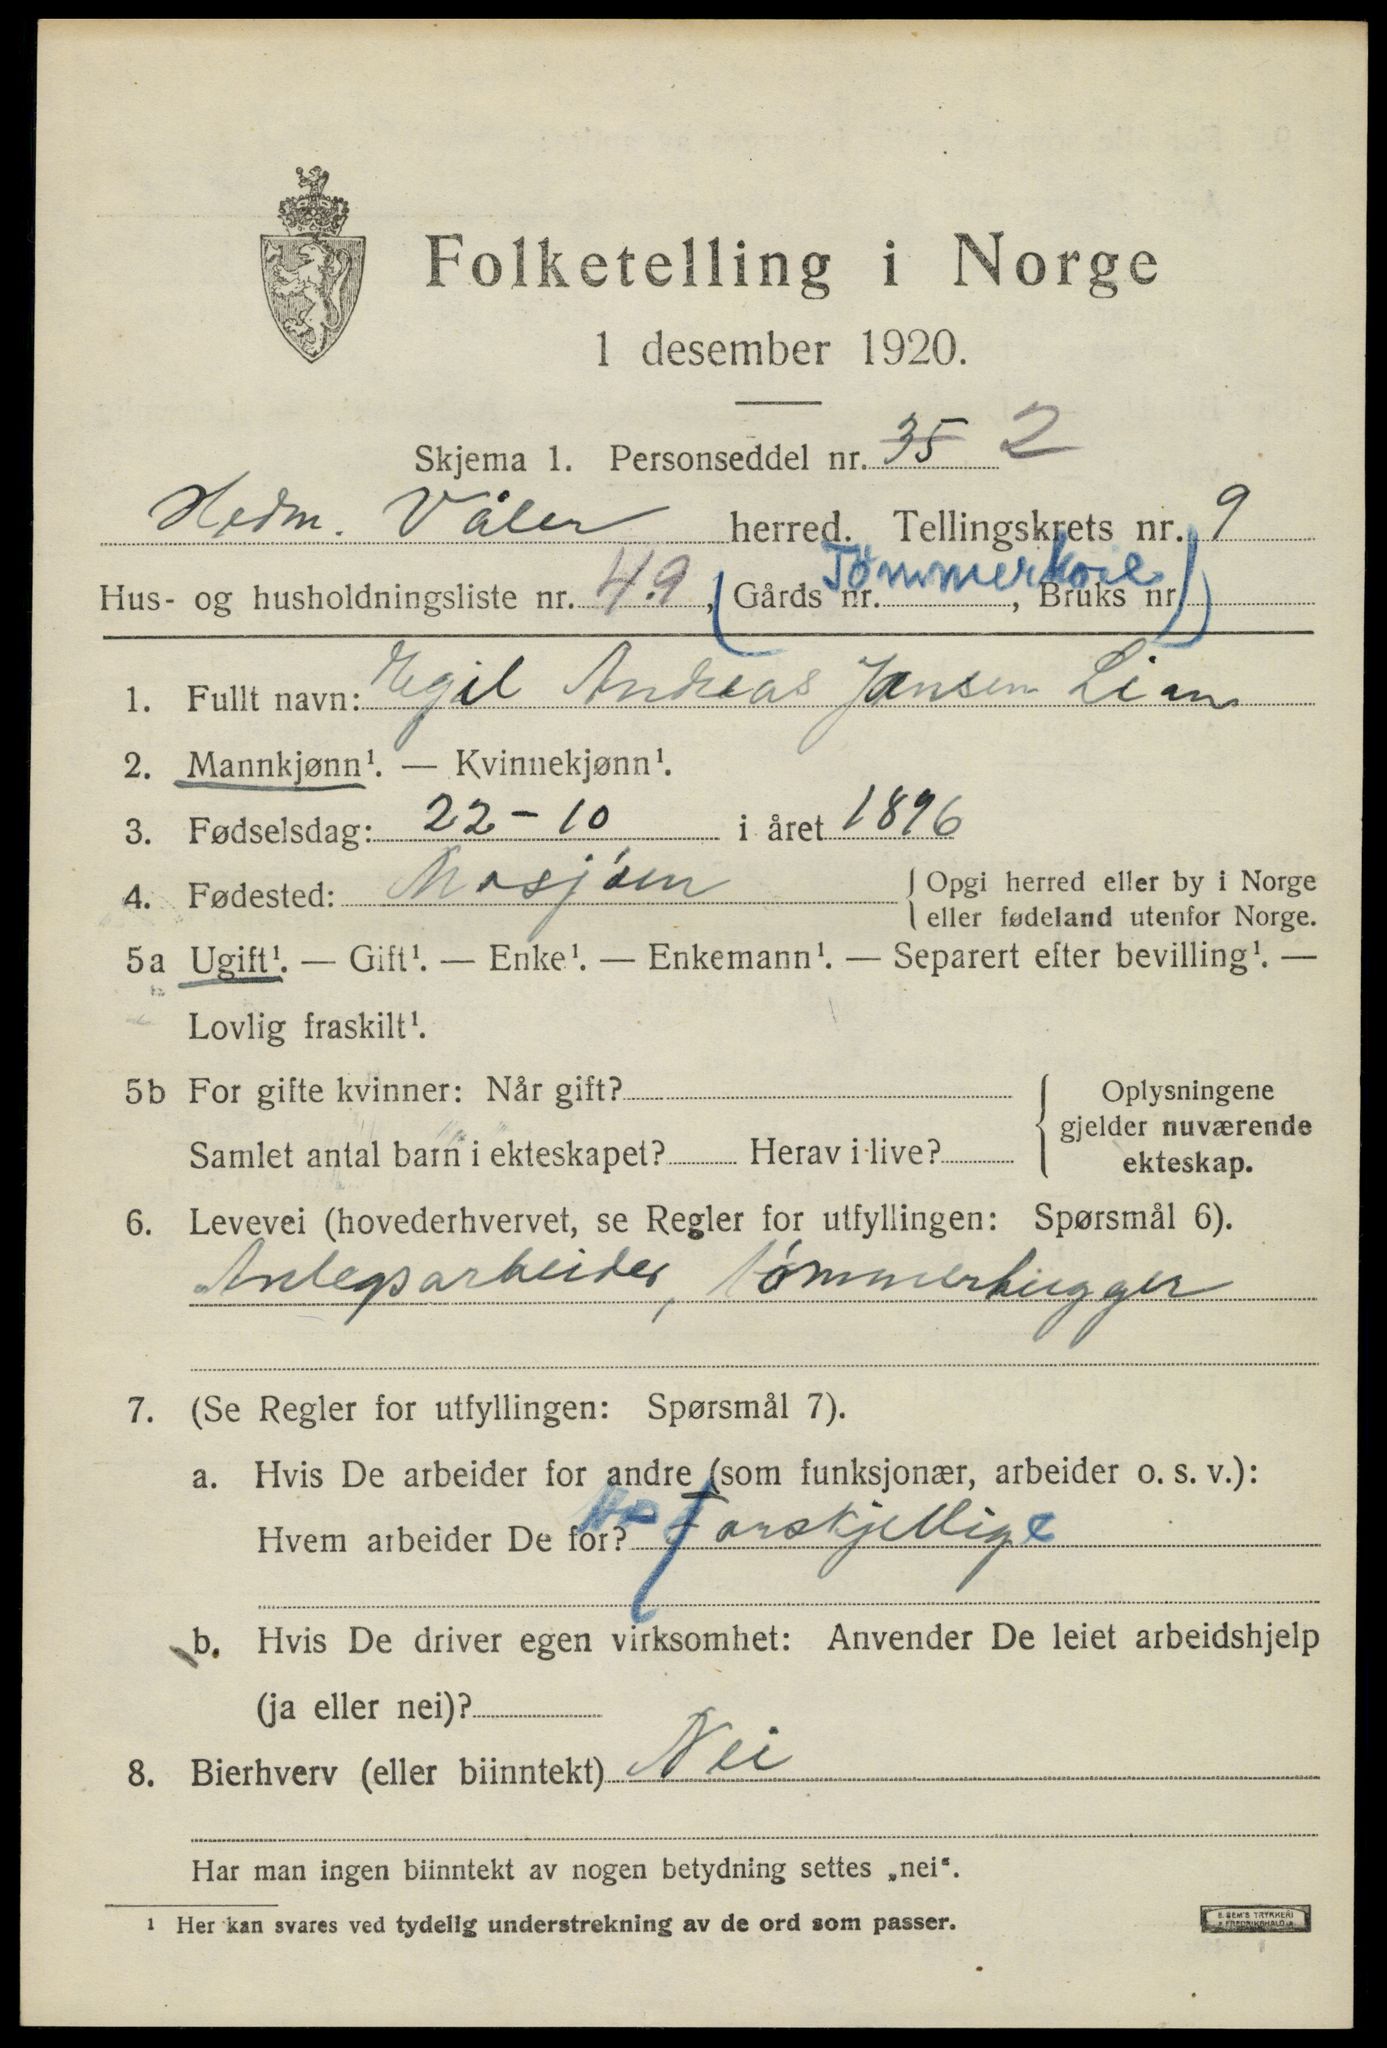 Folketelling i Norge
1 desember 1920.
Skjema 1. Personseddel nr. 35 2
Hedm. Våler herred. Tellingskrets nr. 9
Tømmerkoie
Hus- og husholdningsliste nr. 49, (Gårds nr. , Bruks nr. )
1. Fullt navn: Egil Andreas Jansen Lian
2. Mannkjønn¹. — Kvinnekjønn¹.
3. Fødselsdag: 22-10 i året 1896
4. Fødested: Mosjøen { Opgi herred eller by i Norge
eller fødeland utenfor Norge.
5a Ugift¹. — Gift¹. — Enke¹. — Enkemann¹. — Separert efter bevilling¹. —
Lovlig fraskilt¹.
5b For gifte kvinner: Når gift? { Oplysningene
gjelder nuværende
Samlet antal barn i ekteskapet? Herav i live?
ekteskap.
6. Levevei (hovederhvervet, se Regler for utfyllingen: Spørsmål 6).
Anlegsarbeider, tømmerhugger
7. (Se Regler for utfyllingen: Spørsmål 7).
a. Hvis De arbeider for andre (som funksjonær, arbeider o. s. v.):
Hvem arbeider De for? Forskjellige
b. Hvis De driver egen virksomhet: Anvender De leiet arbeidshjelp
(ja eller nei)?
8. Bierhverv (eller biinntekt) Nei
Har man ingen biinntekt av nogen betydning settes „nei“.
¹ Her kan svares ved tydelig understrekning av de ord som passer.
E. SEM'S TRYKKERI
FREDRIKSHALD